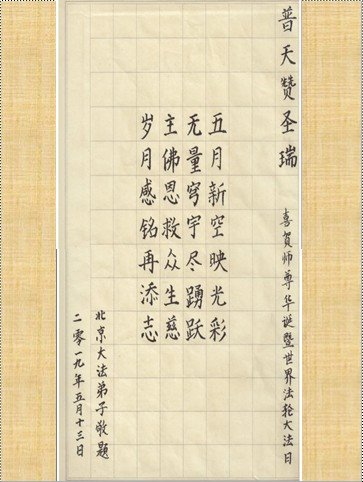 普天赞圣瑞
喜贺师尊华诞暨世界法轮大法日
五月新空映光彩
无量穹宇尽踊跃
主佛恩救众生慈
岁月感铭再添志
北京大法弟子敬题
二零一九年五月十三日